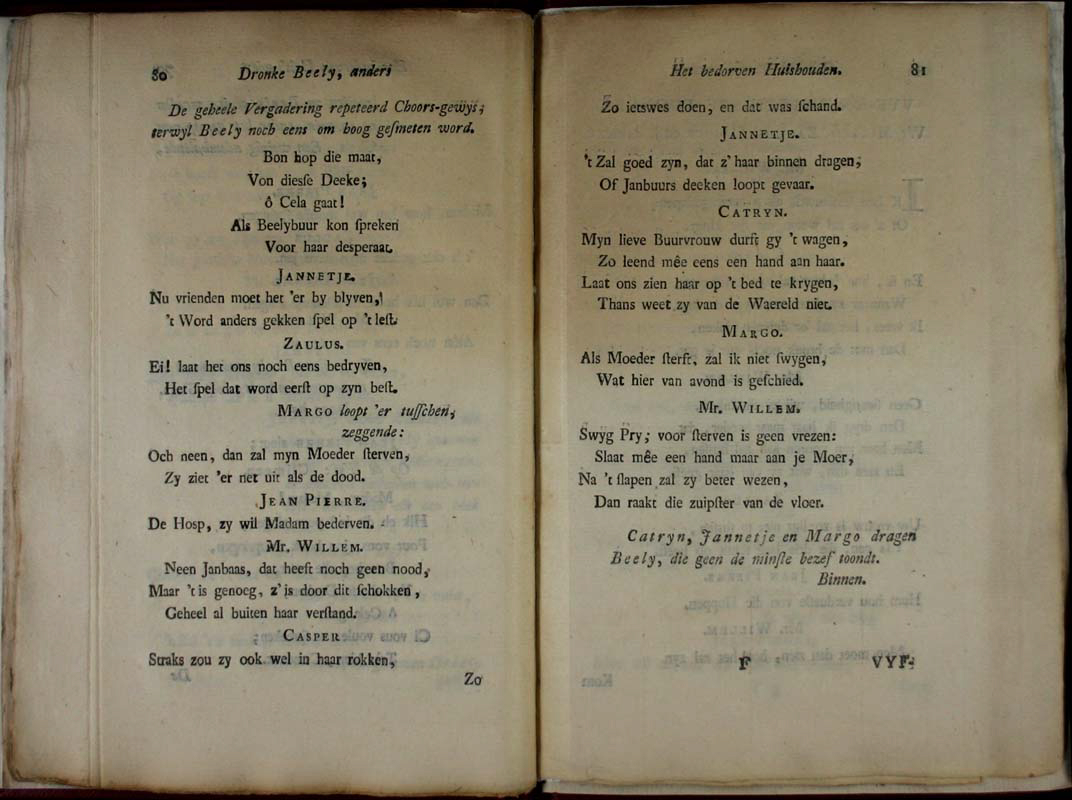 80 Dronke Beely, anders
De geheele Vergadering repeteerd Choors-gewys;
terwyl Beely noch eens om hoog geſmeten word.
Bon hop die maat,
Von dieſſe Deeke;
ô Cela gaat!
Als Beelybuur kon ſpreken
Voor haar desperaat.
JANNETJE.
Nu vrienden moet het 'er by blyven,
't Word anders gekken ſpel op 't leſt.
ZAULUS.
Ei! laat het ons noch eens bedryven,
Het ſpel dat word eerſt op zyn beſt.
MARGO loopt 'er tuſſchen,
zeggende:
Och neen, dan zal myn Moeder ſterven,
Zy ziet 'er net uit als de dood.
JEAN PIERRE.
De Hosp, zy wil Madam bederven.
Mr. WILLEM.
Neen Janbaas, dat heeft noch geen nood,
Maar 't is genoeg, z' is door dit ſchokken,
Geheel al buiten haar verſtand.
CASPER.
Straks zou zy ook wel in haar rokken,
Zo
Het bedorven Huishouden. 81
Zo ietswes doen, en dat was ſchand.
JANNETJE.
't Zal goed zyn, dat z' haar binnen dragen,
Of Janbuurs deeken loopt gevaar.
CATRYN.
Myn lieve Buurvrouw durft gy 't wagen,
Zo leend mêe eens een hand aan haar.
Laat ons zien haar op 't bed te krygen,
Thans weet zy van de Waereld niet.
MARGO.
Als Moeder ſterft, zal ik niet ſwygen,
Wat hier van avond is geſchied.
Mr. WILLEM.
Swyg Pry; voor ſterven is geen vrezen:
Slaat mêe een hand maar aan je Moer,
Na 't ſlapen zal zy beter wezen,
Dan raakt die zuipſter van de vloer.
Catryn, Jannetje en Margo dragen
Beely, die geen de minſte bezef toondt.
Binnen.
F VYF-